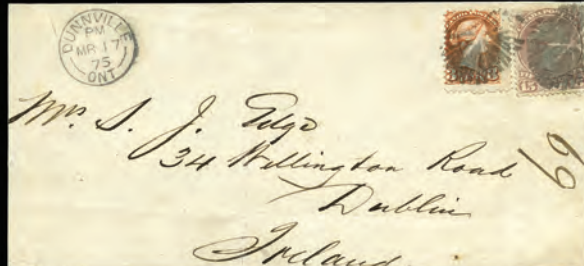 DUNNVILLE
PM
MR 17
75
ONT
Mrs S. J. Edge
34 Wellington Road
Dublin
Ireland
69
15